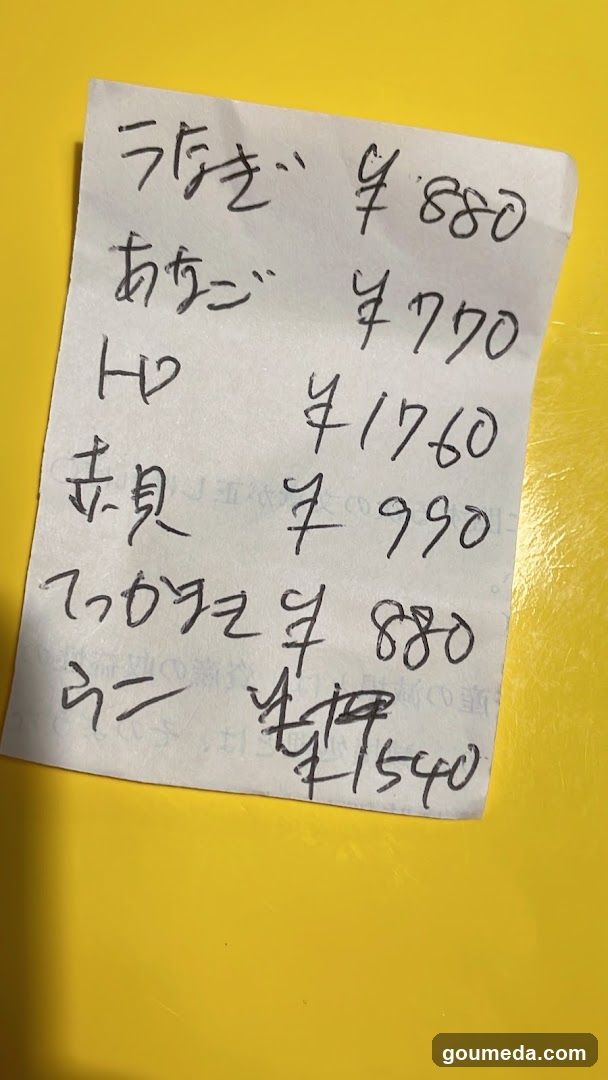 うなぎ ¥880
あなご ¥770
トロ ¥1760
赤貝 ¥990
てっかまき ¥880
ウニ
¥1540
goumeda.com